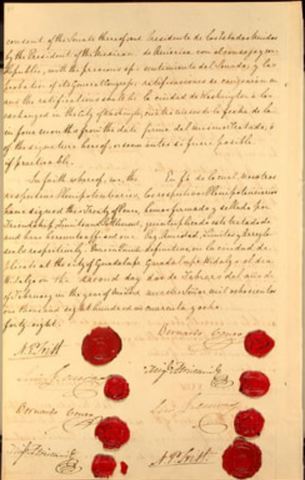 consent of the Senate thereof; and
by the President of the Mexican
Republic, with the previous ap-
probation of its General Congress;
and the ratifications shall be
exchanged in the City of Washington,
in four months from the date
of the signature hereof, or sooner
if practicable.
In faith whereof, we, the
respective Plenipotentiaries,
have signed this Treaty of Peace,
Friendship, Limits and Settlement,
and have hereunto affixed our
seals respectively. Done in Quintu-
plicate at the City of Guadalupe
Hidalgo on the second day
of February in the year of our Lord
one thousand eight hundred and
forty eight.
N. P. Trist
Luis G. Cuevas
Bernardo Couto
Migl. Atristain
Presidente de los Estados Unidos
de America con el consejo y con-
sentimiento del Senado; y las
ratificaciones se canjearan en
la ciudad de Washington a los
meses de la fecha de la
firma del mismo Tratado, ó
antes si fuere posible.
En fé de lo cual, nosotros
los respectivos Plenipotenciarios
hemos firmado y sellado por
quintuplicado este tratado de
Paz, Amistad, Limites y Arreglo
definitivo, en la ciudad de
Guadalupe Hidalgo el dia
dos de Febrero del año de
nuestro Señor mil ochocientos
cuarenta y ocho.
Bernardo Couto
Migl. Atristain
Luis G. Cuevas
N. P. Trist